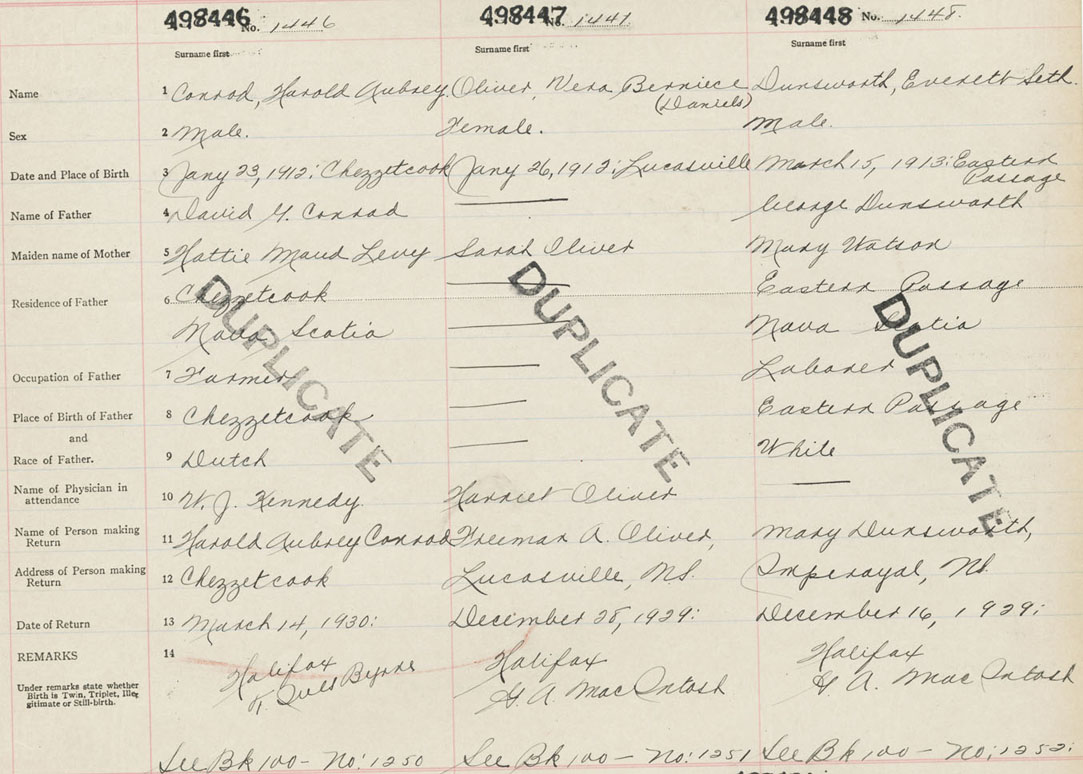 498446 498447 498448
No. 1446 No. 1447 No. 1448.
Surname first Surname first Surname first
Name 1 Conrad, Harold Aubrey Oliver, Vera Berniece Dunsworth, Everett Seth.
(Daniels)
Sex 2 Male. Female. Male.
Date and Place of Birth 3 Jany 23, 1912: Chezzetcook Jany 26, 1912: Lucasville March 15, 1913: Eastern
Passage
Name of Father 4 David Y. Conrad George Dunsworth
Maiden name of Mother 5 Hattie Maud Levy Sarah Oliver Mary Watson
Residence of Father 6 Chezzetcook Eastern Passage
Nova Scotia Nova Scotia
Occupation of Father 7 Farmer Laborer
Place of Birth of Father 8 Chezzetcook Eastern Passage
and
Race of Father. 9 Dutch White
Name of Physician in
attendance 10 W. J. Kennedy. Harriet Oliver
Name of Person making
Return 11 Harold Aubrey Conrad Freeman A. Oliver, Mary Dunsworth,
Address of Person making
Return 12 Chezzetcook Lucasville, N.S. Imperoyal, N.S.
Date of Return 13 March 14, 1930: December 28, 1929: December 16, 1929:
REMARKS 14 Halifax Halifax Halifax
Byrne G. A. MacIntosh G. A. MacIntosh
Under remarks state whether
Birth is Twin, Triplet, Ille-
gitimate or Still-birth.
See Bk 100 - No: 1250 See Bk 100 - No: 1251 See Bk 100 - No: 1252:
DUPLICATE DUPLICATE DUPLICATE